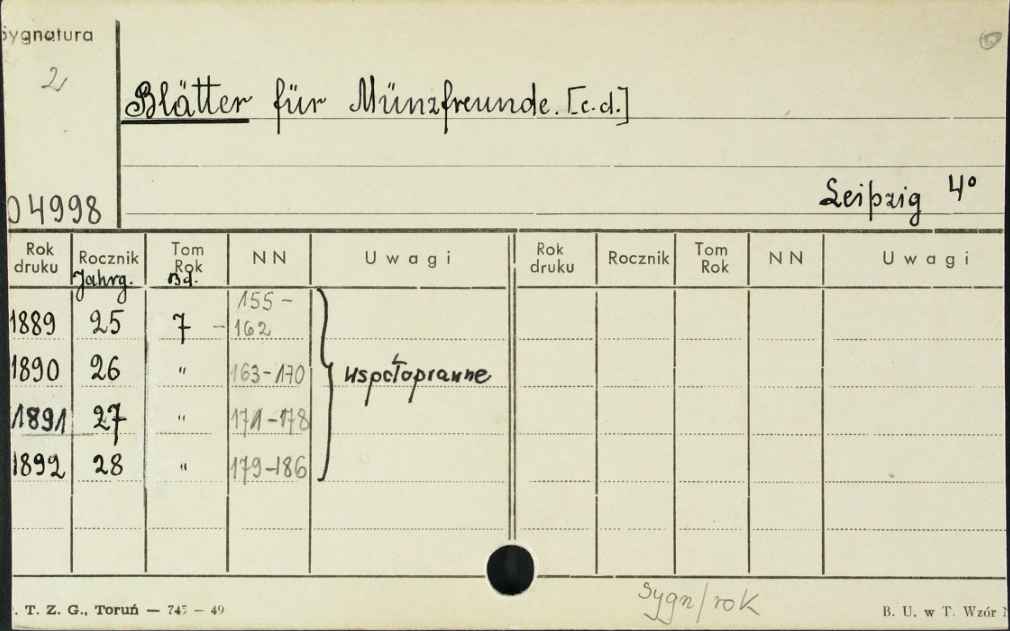 Sygnatura
2
Blätter für Münzfreunde. [c.d.]
Leipzig 4°
04998
Rok druku Rocznik Tom Rok NN Uwagi Rok druku Rocznik Tom Rok NN Uwagi
Jahrg. Bd.
1889 25 7 - 155 - 162
1890 26 " 163-170 współoprawne
1891 27 " 171-178
1892 28 " 179-186
Sygn/rok
. T. Z. G., Toruń — 745 — 49 B. U. w T. Wzór